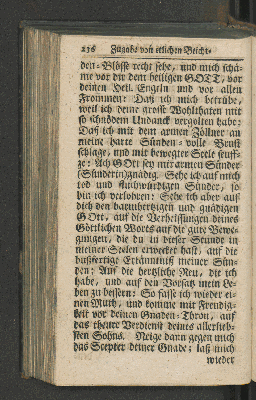 236 Zugabe von etlichen Beicht-
den-Blösse recht sehe, und mich schä-
me vor dir dem heiligen GOTT, vor
deinen Heil. Engeln und vor allen
Frommen: Daß ich mich betrübe,
weil ich deine grosse Wohlthaten mit
so schnödem Undanck vergolten habe:
Daß ich mit dem armen Zöllner an
meine harte Sünden-volle Brust
schlage, und mit bewegter Seele seuff-
ze: Ach GOtt sey mir armen Sünder
(Sünderin) gnädig. Sehe ich auf mich
und fluchwürdigen Sünder, so
bin ich verlohren: Sehe ich aber auf
dich den barmhertzigen und gnädigen
GOtt, auf die Verheissungen deines
Göttlichen Worts auf die gute Bewe-
gungen, die du in dieser Stunde in
meiner Seelen erwecket hast, auf die
bußfertige Erkänntniß meiner Sün-
den; Auf die hertzliche Reu, die ich
habe, und auf den Vorsatz mein Le-
ben zu bessern: So fasse ich wieder ei-
nen Muth, und komme mit Freudig-
keit vor deinen Gnaden-Thron, auf
das theure Verdienst deines allerlieb-
sten Sohns. Neige dann gegen mich
das Scepter deiner Gnade; laß mich
wieder